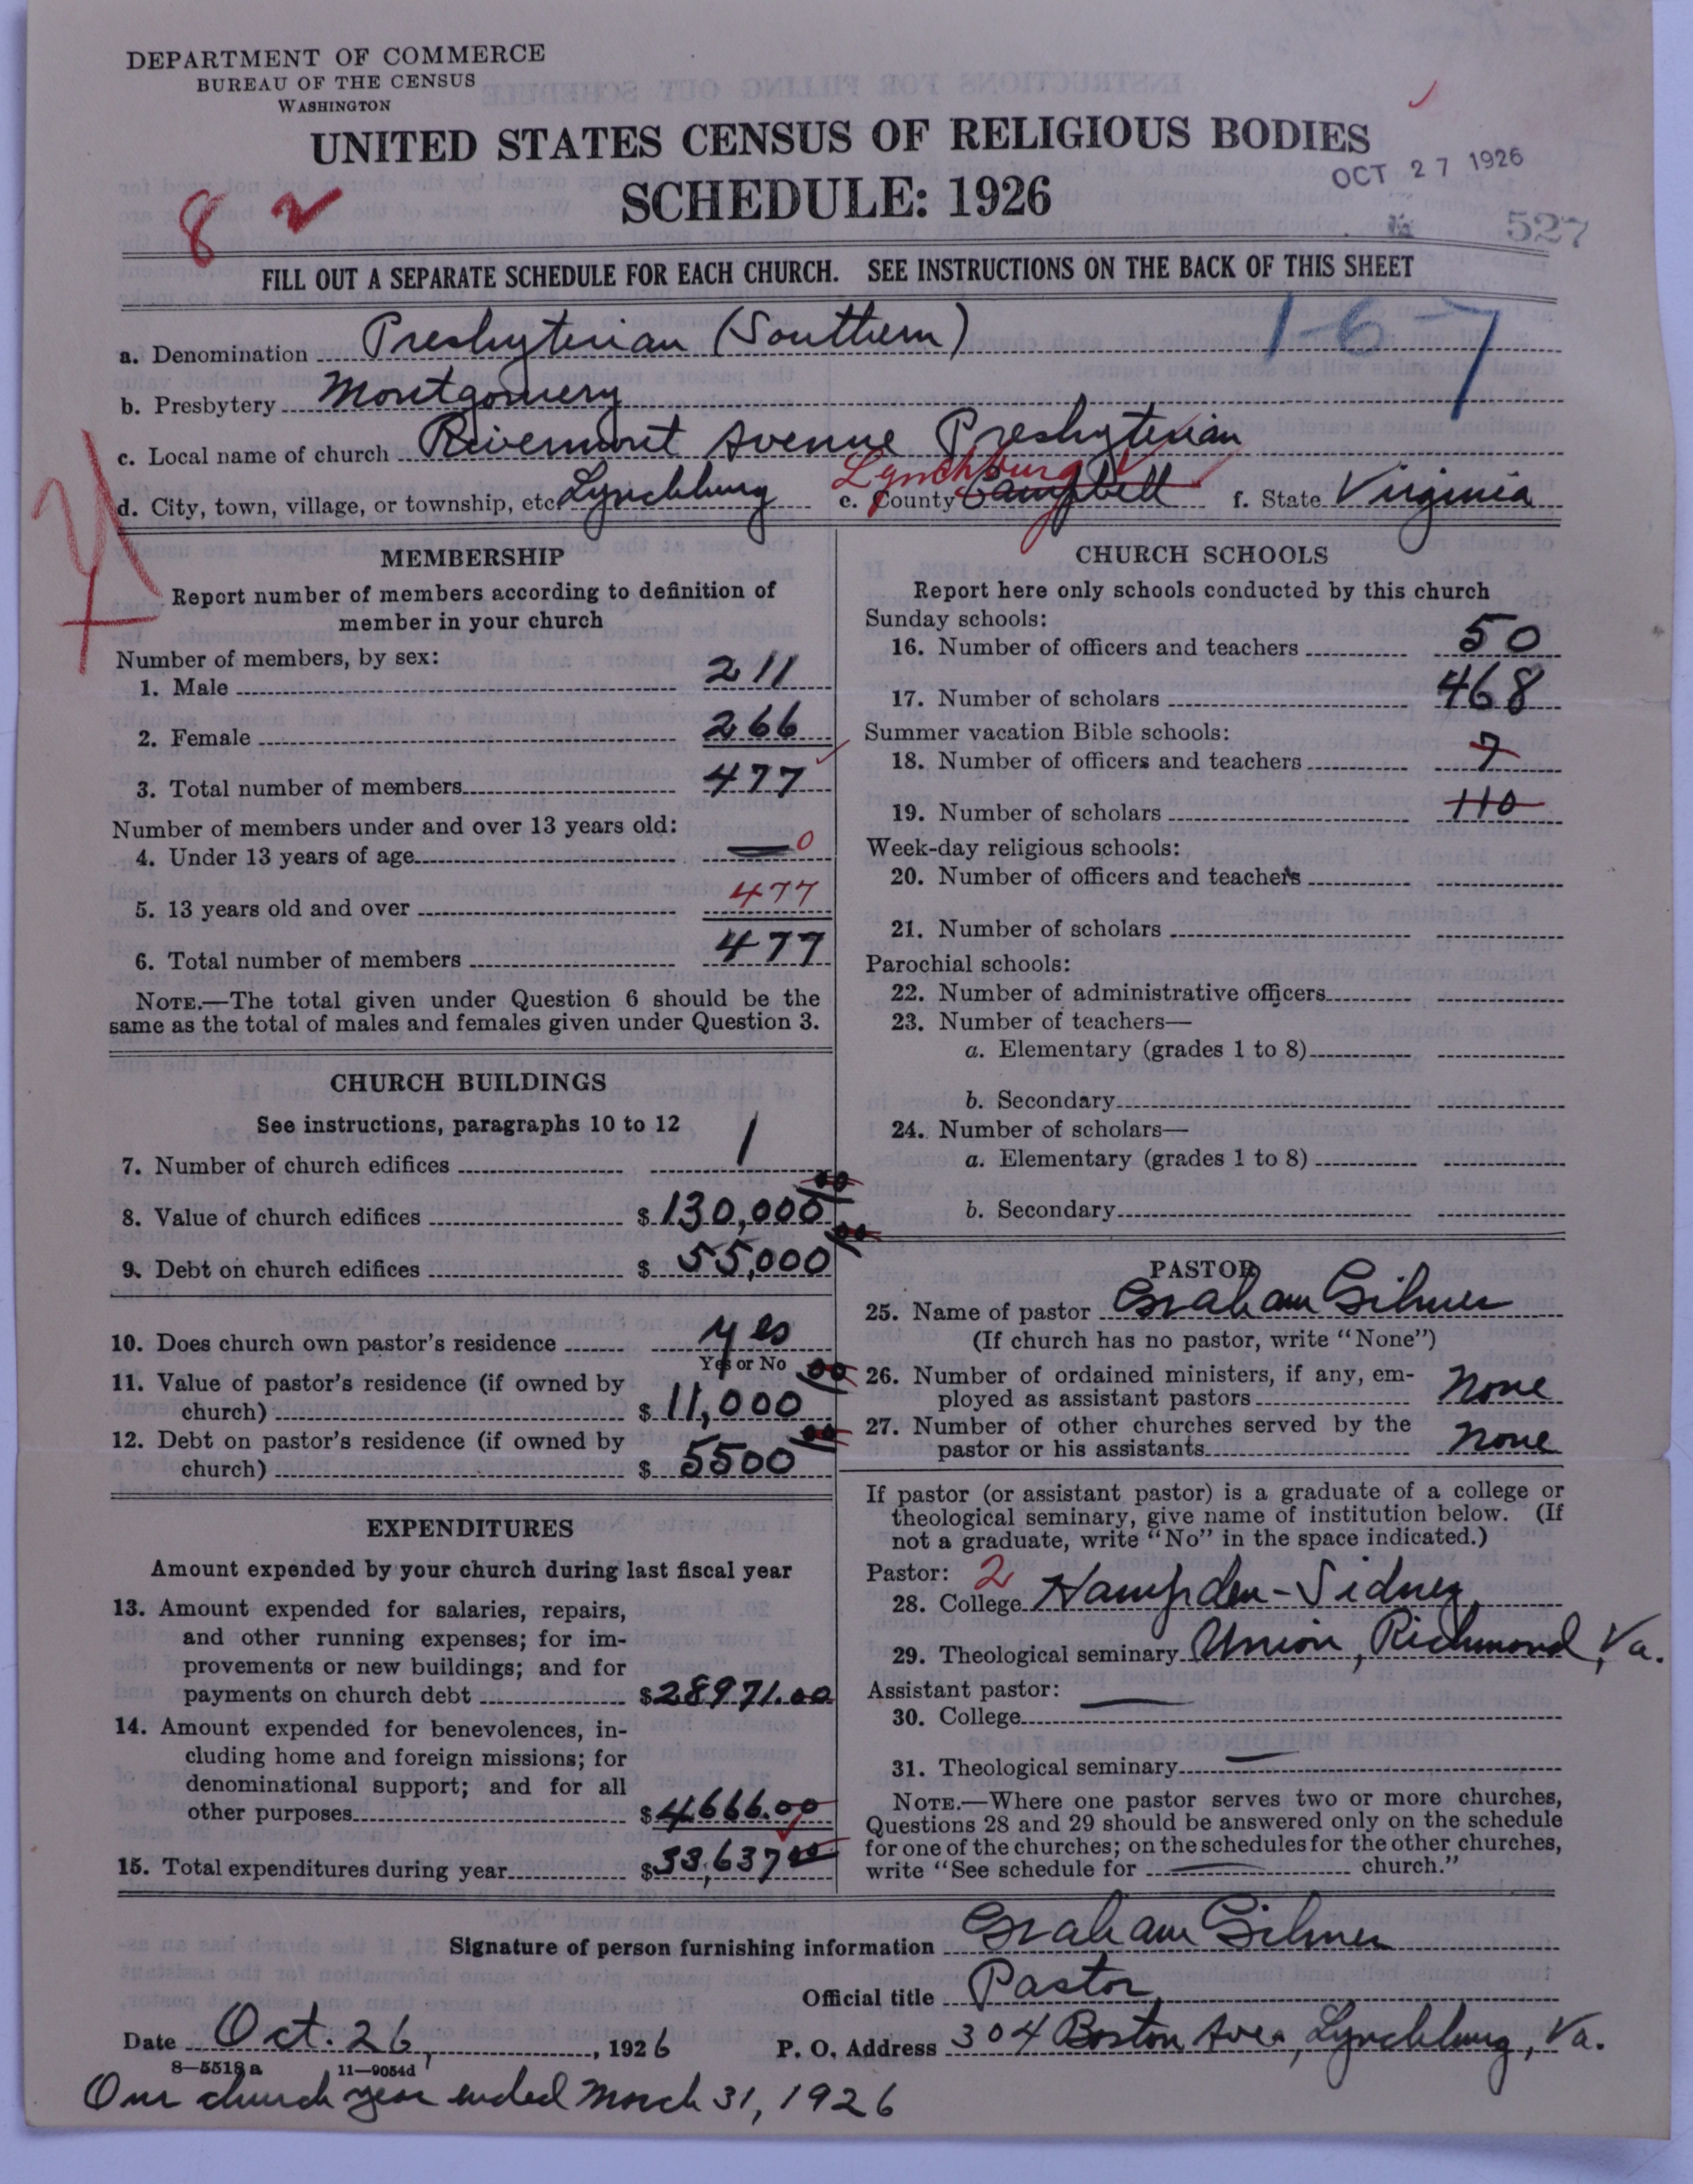 DEPARTMENT OF COMMERCE
BUREAU OF THE CENSUS
WASHINGTON
UNITED STATES CENSUS OF RELIGIOUS BODIES
SCHEDULE: 1926
OCT 27 1926
527
8 2
FILL OUT A SEPARATE SCHEDULE FOR EACH CHURCH. SEE INSTRUCTIONS ON THE BACK OF THIS SHEET
1-6-7
a. Denomination Presbyterian (Southern)
b. Presbytery Montgomery
c. Local name of church Rivermont Avenue Presbyterian
Lynchburg
d. City, town, village, or township, etc. Lynchburg e. County Campbell f. State Virginia
MEMBERSHIP
Report number of members according to definition of
member in your church
Number of members, by sex:
1. Male 211
2. Female 266
3. Total number of members 477
Number of members under and over 13 years old:
4. Under 13 years of age — 0
5. 13 years old and over 477
6. Total number of members 477
NOTE.—The total given under Question 6 should be the
same as the total of males and females given under Question 3.
CHURCH BUILDINGS
See instructions, paragraphs 10 to 12
7. Number of church edifices 1
8. Value of church edifices $130,000 00
9. Debt on church edifices $55,000 00
10. Does church own pastor's residence yes
Yes or No
11. Value of pastor's residence (if owned by
church) $11,000 00
12. Debt on pastor's residence (if owned by
church) $5500 00
EXPENDITURES
Amount expended by your church during last fiscal year
13. Amount expended for salaries, repairs,
and other running expenses; for im-
provements or new buildings; and for
payments on church debt $28971.00
14. Amount expended for benevolences, in-
cluding home and foreign missions; for
denominational support; and for all
other purposes $4666.00
15. Total expenditures during year $33,637 00
CHURCH SCHOOLS
Report here only schools conducted by this church
Sunday schools:
16. Number of officers and teachers 50
17. Number of scholars 468
Summer vacation Bible schools:
18. Number of officers and teachers 7
19. Number of scholars 110
Week-day religious schools:
20. Number of officers and teachers
21. Number of scholars
Parochial schools:
22. Number of administrative officers
23. Number of teachers—
a. Elementary (grades 1 to 8)
b. Secondary
24. Number of scholars—
a. Elementary (grades 1 to 8)
b. Secondary
PASTOR
25. Name of pastor Graham Gilmer
(If church has no pastor, write "None")
26. Number of ordained ministers, if any, em-
ployed as assistant pastors None
27. Number of other churches served by the
pastor or his assistants None
If pastor (or assistant pastor) is a graduate of a college or
theological seminary, give name of institution below. (If
not a graduate, write "No" in the space indicated.)
Pastor: 2
28. College Hampden-Sidney
29. Theological seminary Union, Richmond, Va.
Assistant pastor: —
30. College
31. Theological seminary —
NOTE.—Where one pastor serves two or more churches,
Questions 28 and 29 should be answered only on the schedule
for one of the churches; on the schedules for the other churches,
write "See schedule for — church."
Signature of person furnishing information Graham Gilmer
Official title Pastor
Date Oct. 26, 1926 P. O. Address 304 Boston Ave., Lynchburg, Va.
8—5518a 11—9054d
Our church year ended March 31, 1926